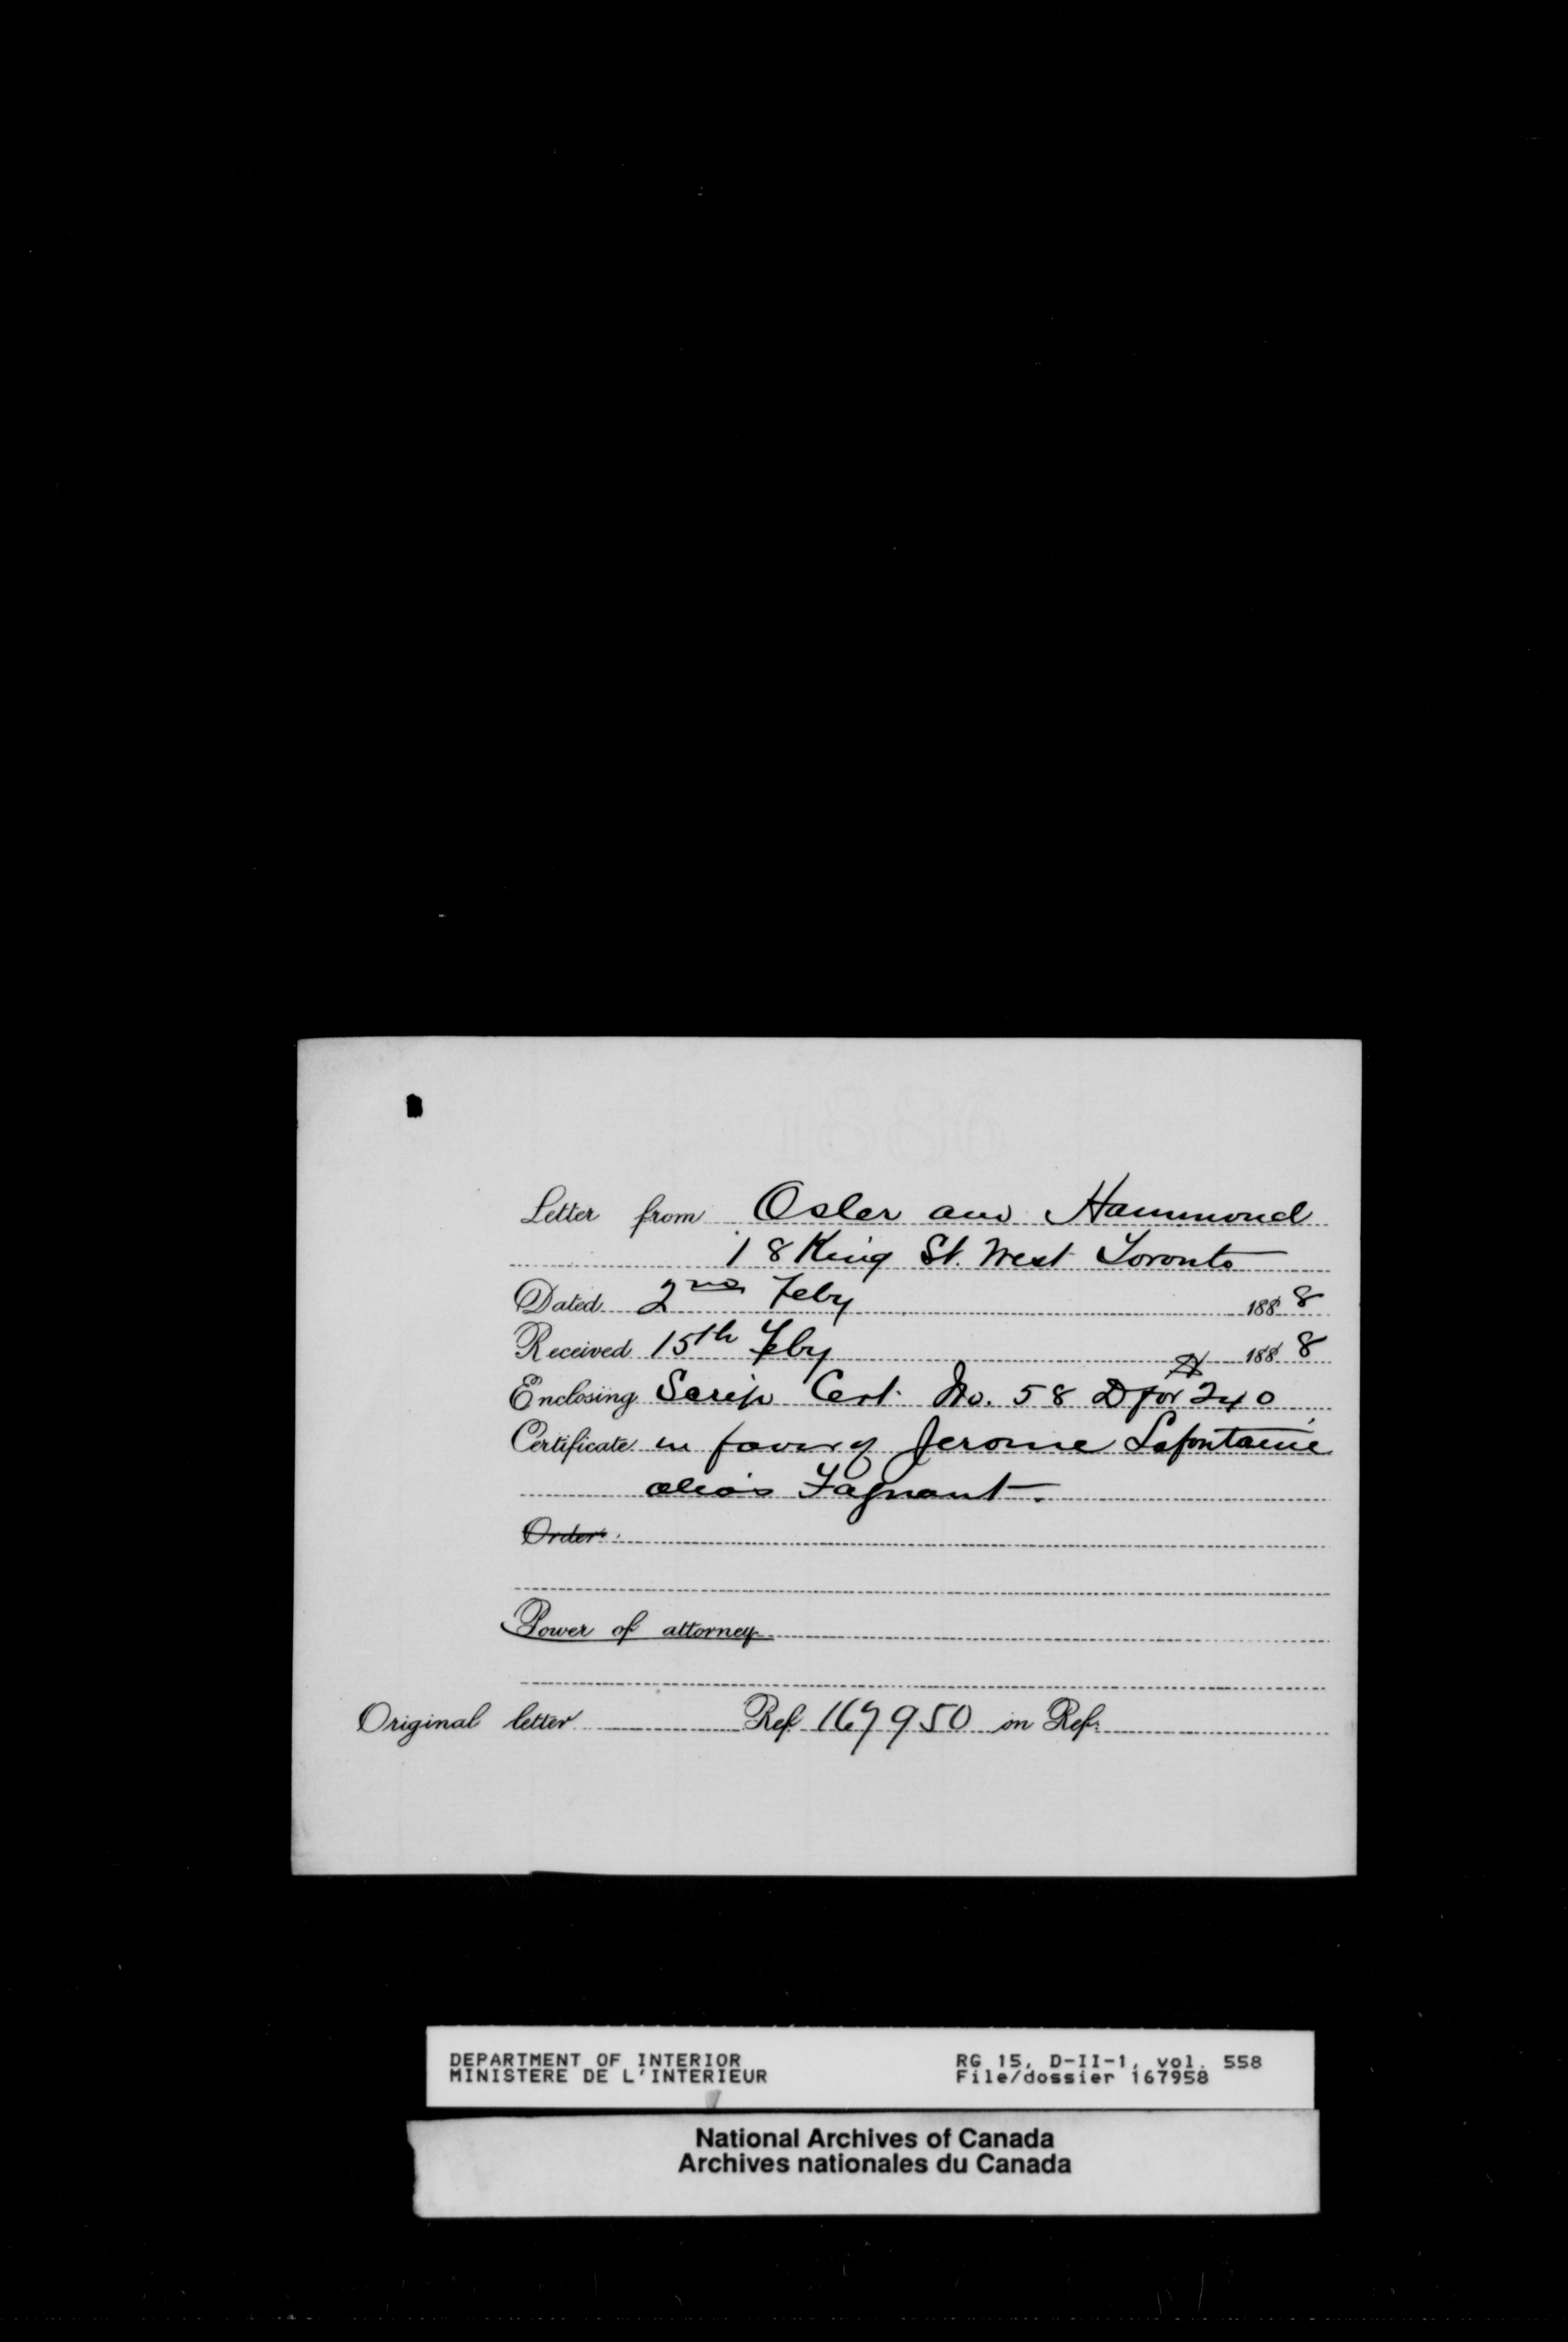 Letter from Osler and Hammond
18 King St. West Toronto
Dated 2nd Feby 1888
Received 15th Feby 1888
Enclosing Scrip Cert. No. 58 D for 240
Certificate in favor of Jerome Lafontaine
alias Fagnant.
Order
Power of attorney
Original letter Ref 167950 in Ref:
DEPARTMENT OF INTERIOR
MINISTERE DE L'INTERIEUR
RG 15, D-II-1, vol. 558
File/dossier 167958
National Archives of Canada
Archives nationales du Canada